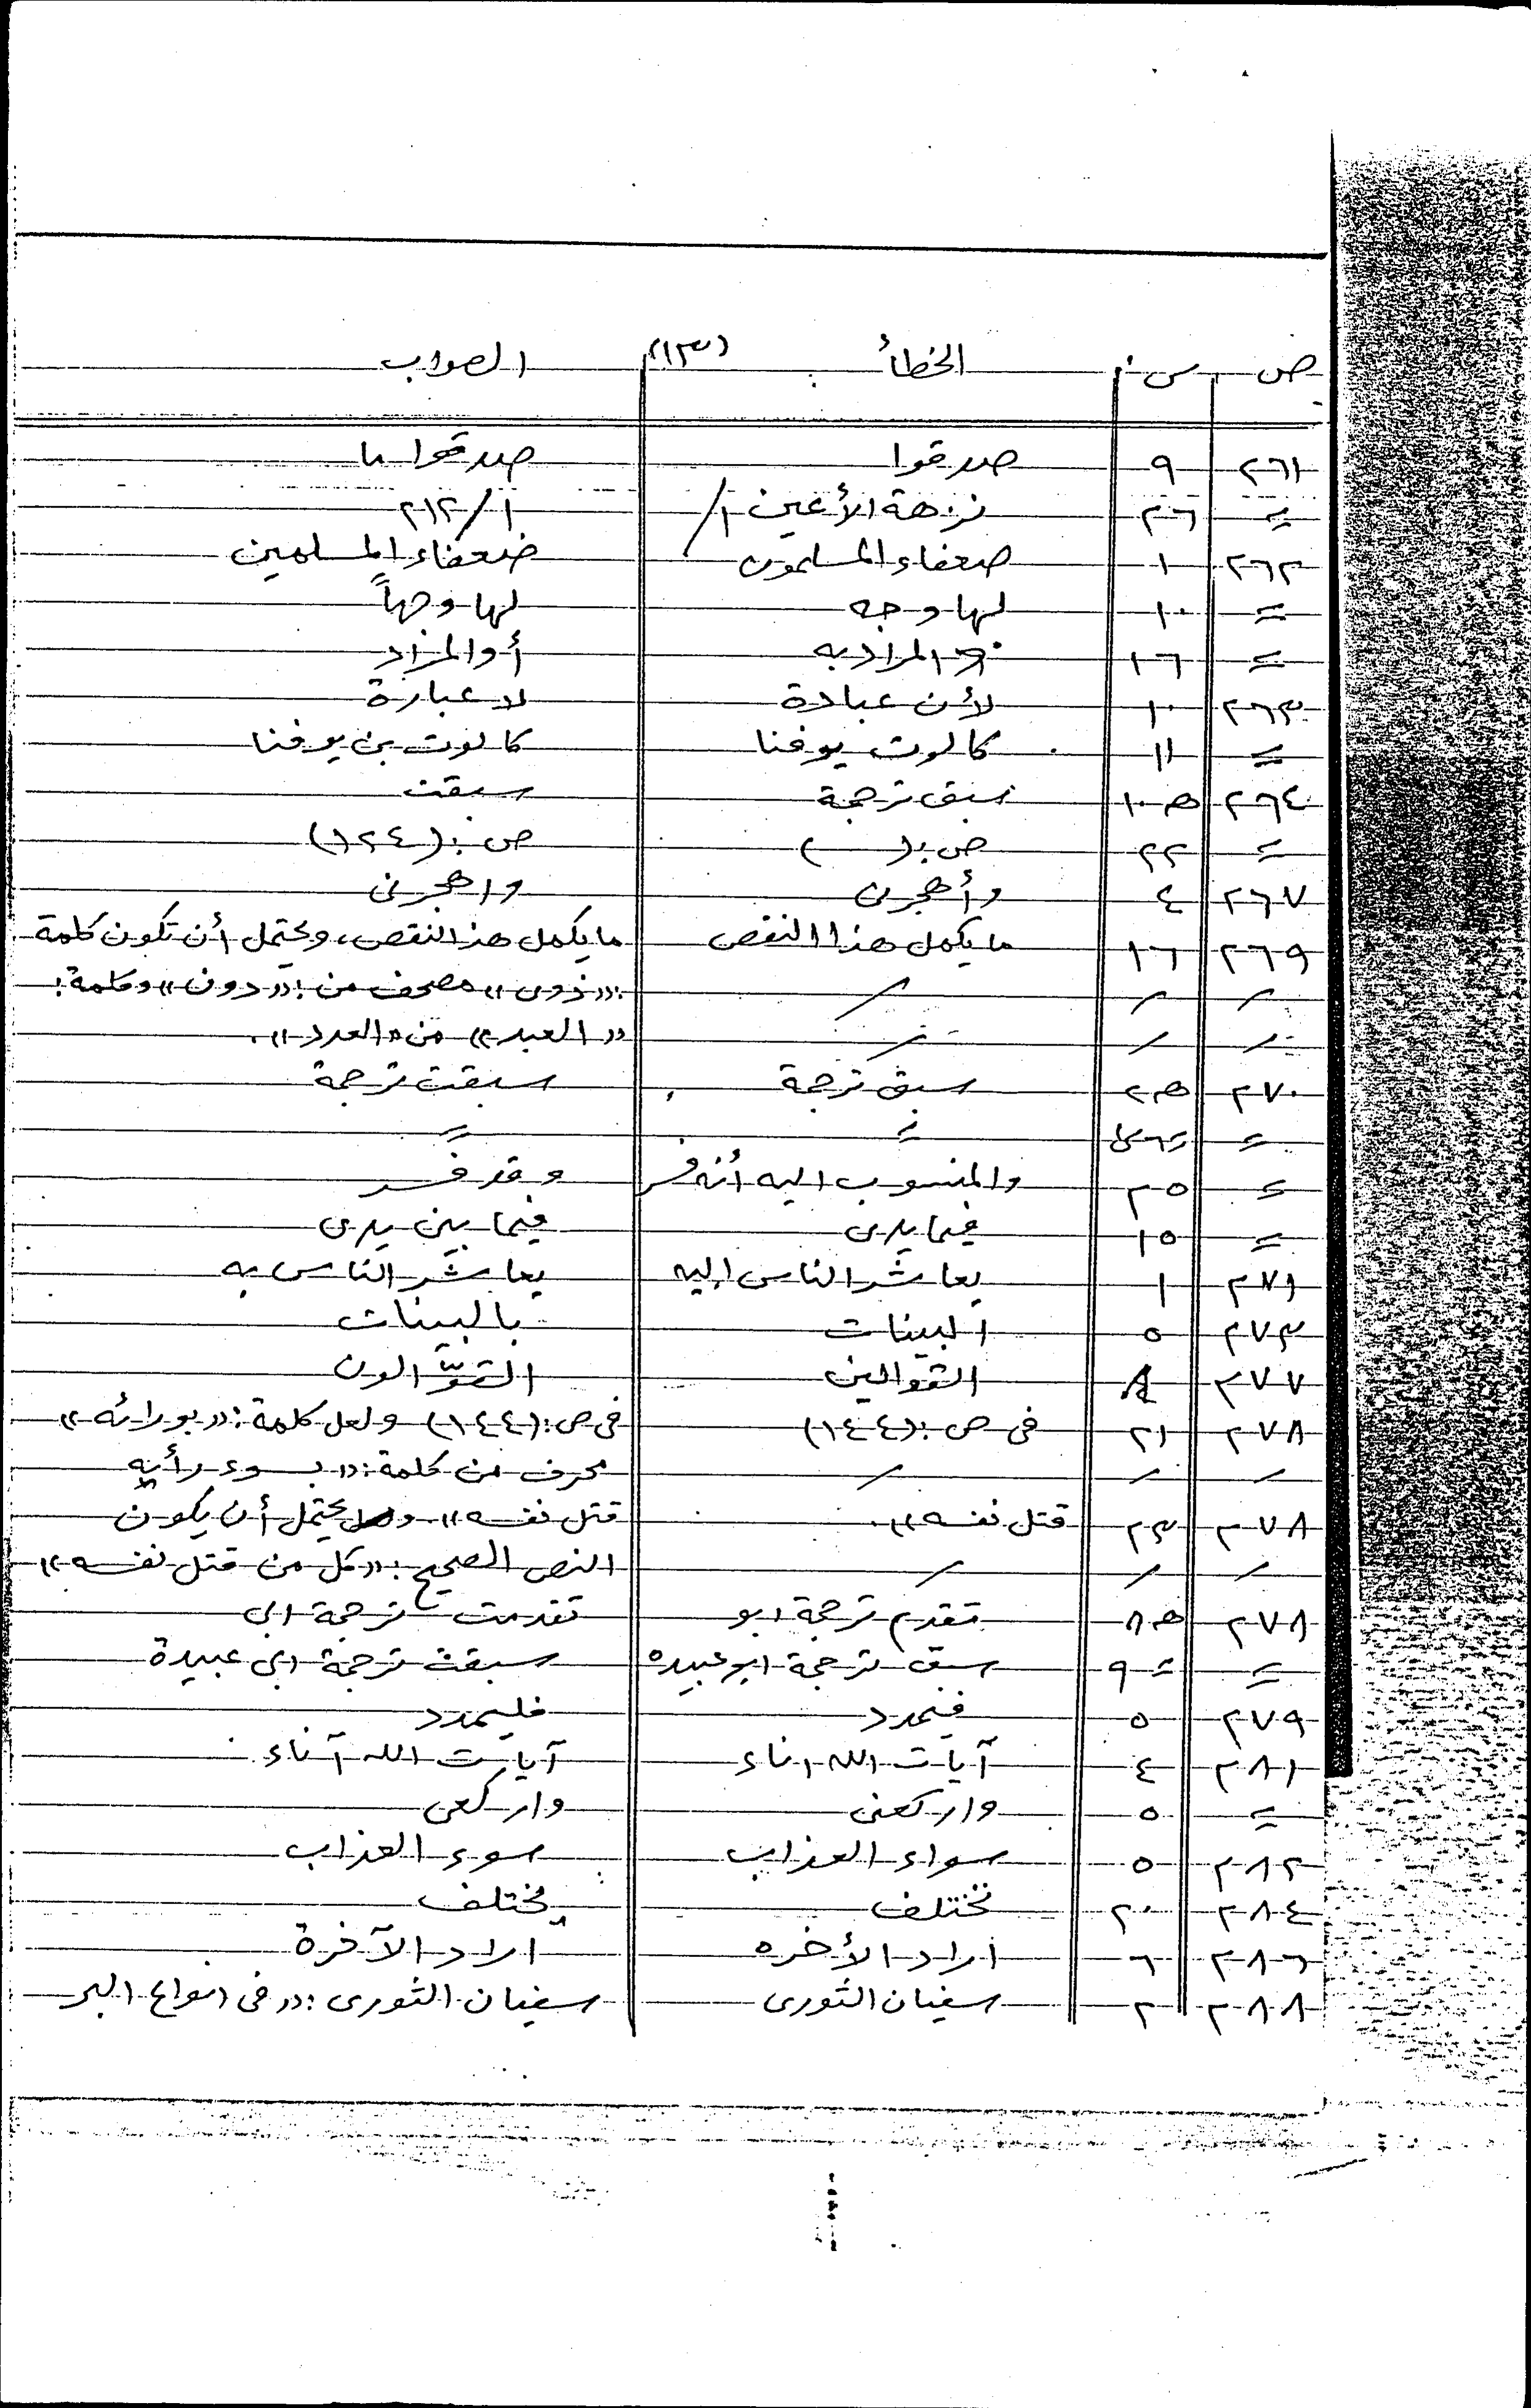 ص س الخطأ (١٣) الصواب
٢٦١ ٩ صدقوا صدقوا ما
= ٢٦ نزهة الأعين ١/ ١/٢١٢
٢٦٢ ١ ضعفاء المسلمون ضعفاء المسلمين
= ١٠ لها وجه لها وجهاً
= ١٦ المراد به أو المراد
٢٦٣ ١٠ لأن عبادة لا عبارة
= ١١ كالوت يوفنا كالوت بن يوفنا
٢٦٤ هـ ١٠ سبق ترجمة سبقت
= ٢٢ ص: ( ) ص: (١٢٤)
٢٦٧ ٤ وأهجرن واهجرن
٢٦٩ ١٦ ما يكمل هذا النقص ما يكمل هذا النقص، ويحتمل أن تكون كلمة
/ / / : «ذوى» مصحف من: «دون» وكلمة:
/ / / «العبد» من «العدد».
٢٧٠ هـ ٢ سبق ترجمة سبقت ترجمة
= = =
= ٢٥ والمنسوب اليه أنه فسر وقد فسر
= ١٥ فيما يدى فيما بين يدى
٢٧١ ١ يعاشر الناس إليه يعاشر الناس به
٢٧٣ ٥ البينات بالبينات
٢٧٧ القوالين القوّالون
٢٧٨ ٢١ فى ص: (١٤٤) فى ص: (١٤٤) ولعل كلمة: «بورائه»
/ / / محرف من كلمة: «بسوء رأيه
٢٧٨ ٢٣ قتل نفسه». قتل نفسه» ويحتمل أن يكون
/ / / النص الصحيح: «كل من قتل نفسه»
٢٧٨ هـ ٨ تقدم ترجمة ابو تقدمت ترجمة ابي
= = ٩ سبق ترجمة ابو عبيده سبقت ترجمة ابي عبيدة
٢٧٩ ٥ فيمدد فليمدد
٢٨١ ٤ آيات الله اناء آيات الله آناء
= ٥ واركعنى واركعى
٢٨٢ ٥ سواء العذاب سوء العذاب
٢٨٤ ٢٠ تختلف يختلف
٢٨٦ ٦ اراد الأخره اراد الآخرة
٢٨٨ ٢ سفيان الثورى سفيان الثورى: «فى انواع البر